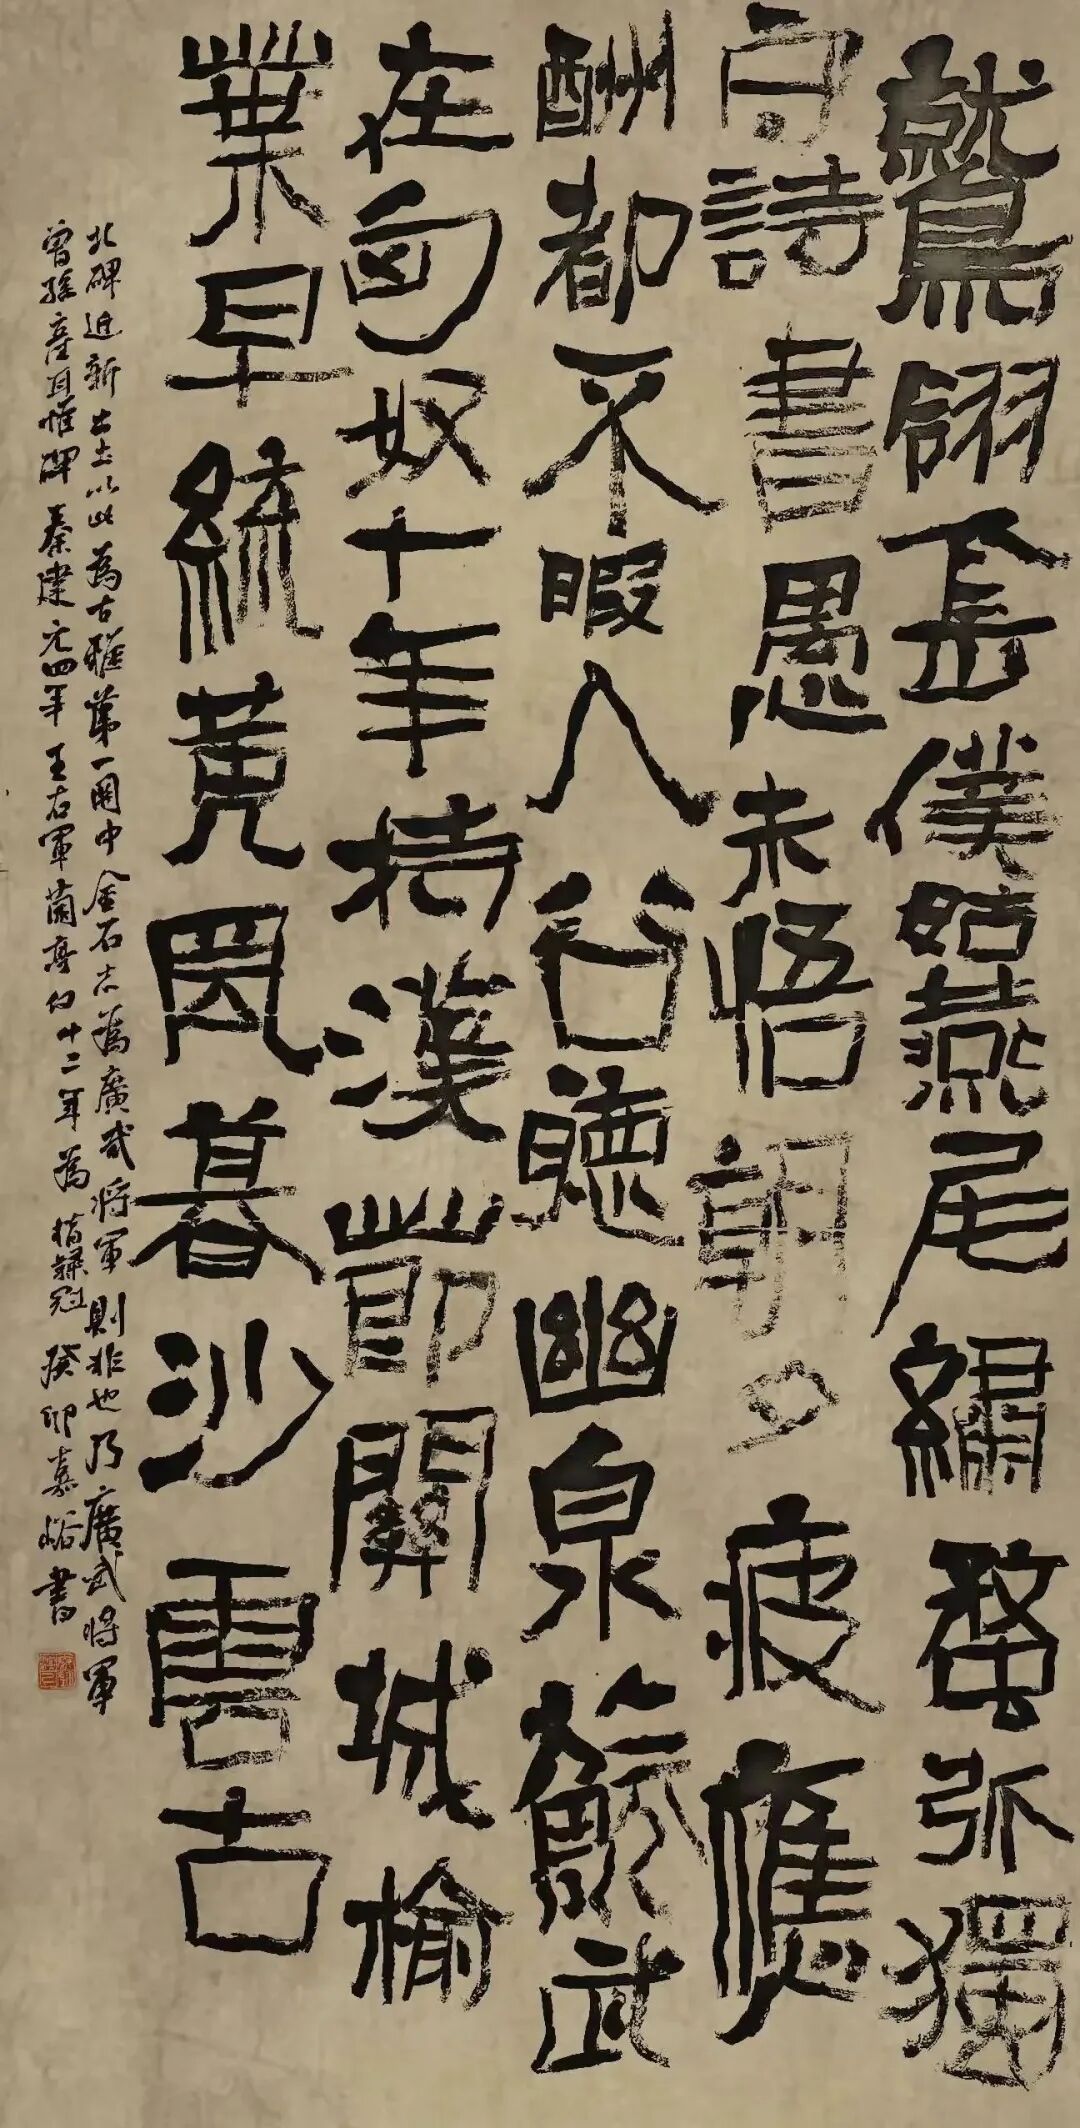 鷲翎僕姑燕尾繡蝥弧獨
詩書愚未悟朝夕疲應
酬都不暇入谷聽幽泉蘇武
在匈奴十年持漢節關城榆
業早黃暮沙雲古
北碑近新出土以此為古雅第一關中金石志為廣武將軍則非也乃廣武將軍
曾孫產耳惟碑秦建元四年王右軍蘭亭十二年為楷隸冠癸卯嘉峪書